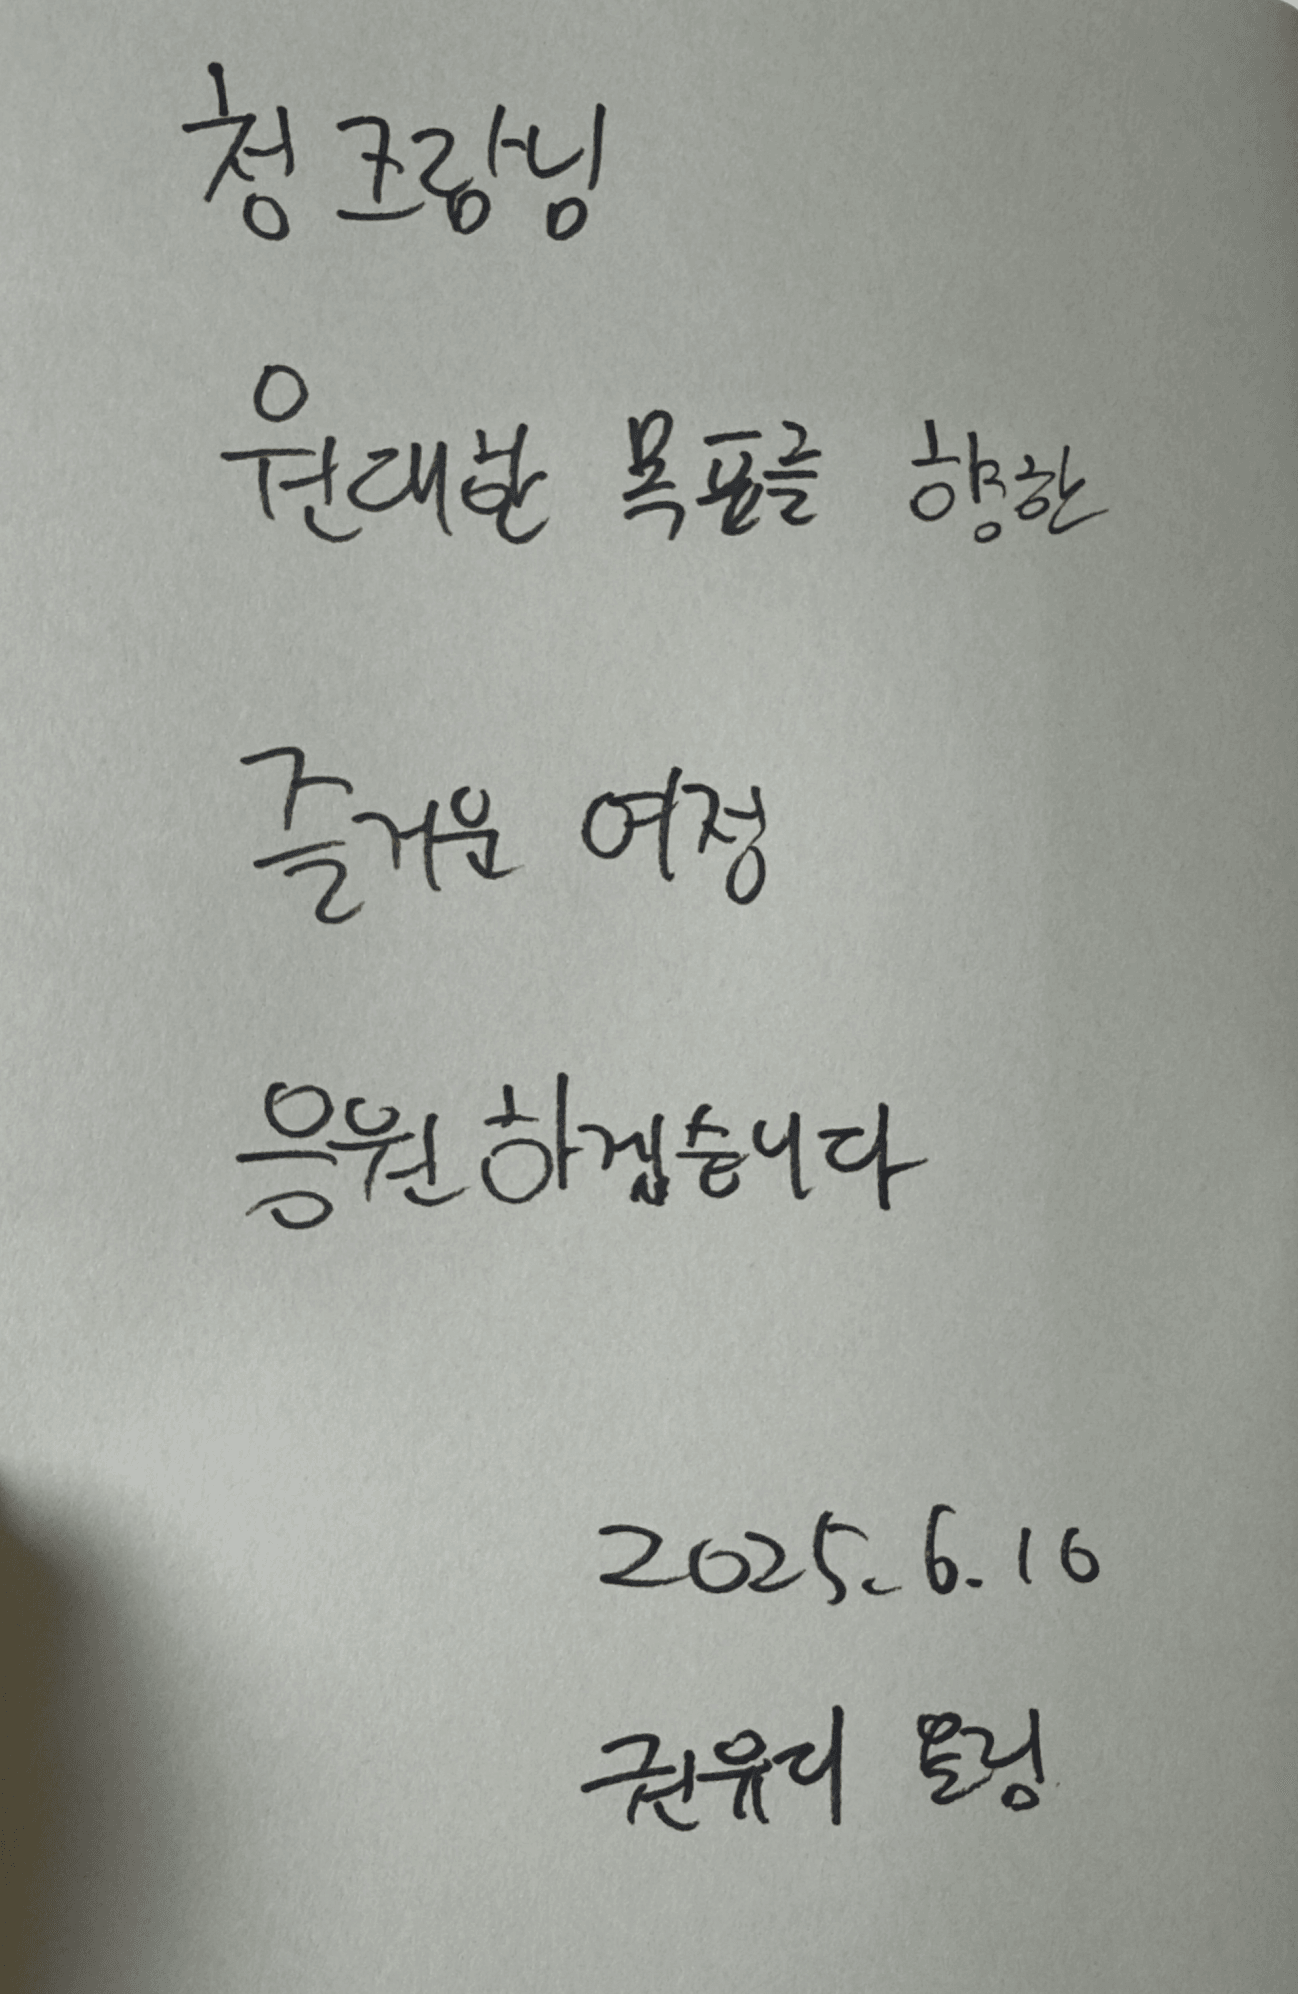 청크랑님
원대한 목표를 향한
즐거운 여정
응원하겠습니다
2025.6.16
권유디 올림